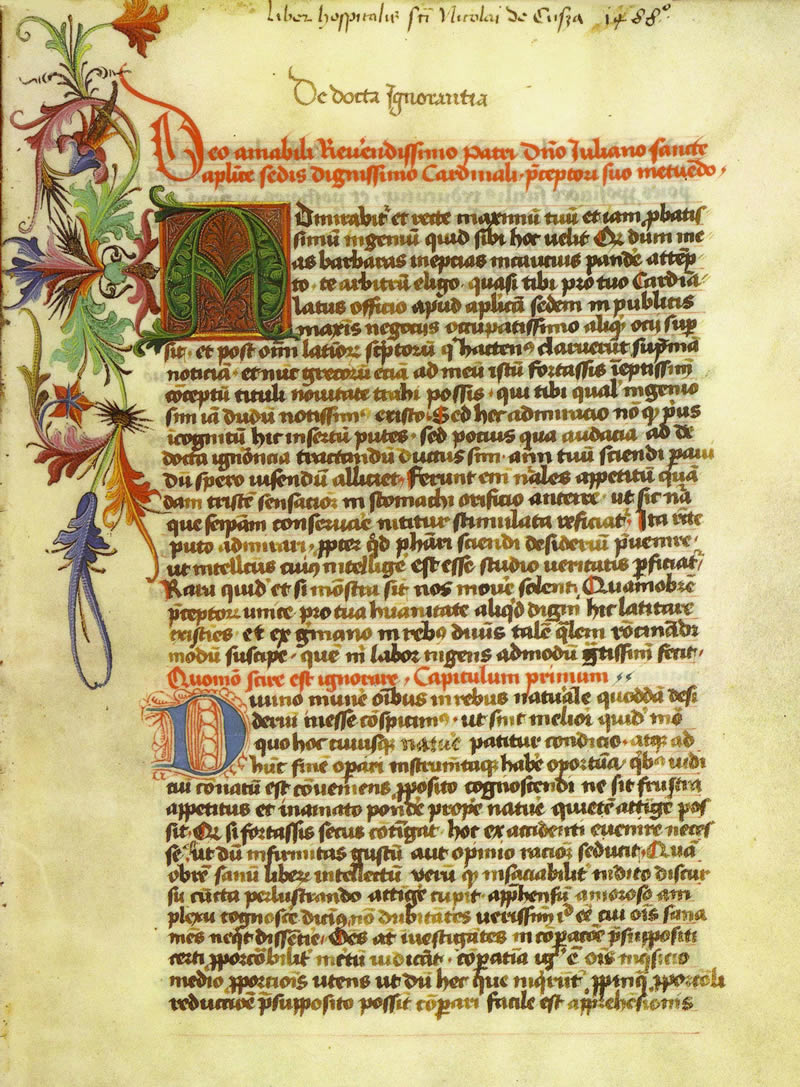 liber hospitalis sti Nicolai de Cusza 1488º
De docta Ignorantia
Deo amabili Reuendissimo Patri dño Iuliano sancte
aplice sedis dignissimo Cardinali · p̄ceptori suo metuēdo ·
Admirabit̄ et recte maximū tuū et iam ꝓbatis
simū ingeniū quid sibi hoc uelit Qꝛ dum me
as barbaras ineptias incautius pande attēp
to · te arbitrū eligo · quasi tibi pro tuo Cardīa
latus officio apud aplicā sedem in publicis
maxis negocijs occupatissimo aliqͥ ocij sup
sit · et post om̄ latiorꝝ sc̄ptorū qͥ hacten⁹ claruerūt sup̄mā
noticiā · et nūc grecorū eciā ad meū istū fortassis īeptissim
cōceptū tituli nouitate trahi possis · qui tibi qual' ingenio
sim iā dudū notissim⁹ existo · Sed hec admiracio nō qͩ pͥus
īcognitū hic insertū putes · sed pocius qua audacia ad de
docta ignorācia tractandū ductus sim · aīm tuū sciendi ꝑauī
dū spero uisendū alliciet · Ferunt em̄ nāles appetitū quā
dam tristē sensacioꝫ in stomachi orificio anteire · ut sic nā
que seip̄am conseruaē nititur stimulata reficiat̄ · Ita recte
puto admirari · ꝓpter qͩ phāri sciendi desideriū p̄uenire ·
ut intellcūs cui⁹ intellige est esse studio ueritatis ꝑficiat̄
Rara quid̄ et si mōstra sit nos mouē solent · Quamobrē
p̄ceptorꝝ unice pro tua hūanitate aliqͩ digni hic latitare
existies · et ex gmano in reb⁹ diuīs talē qͣlem rōcinādi
modū suscipe · quē m̄ labor ingens admodū gͣtissim̄ fecit ·
Quomō scire est ignorare · Capitulum primum
Diuino munē oībus in rebus natuāle quoddā desi
deriū inesse cōspicim⁹ · ut sint meliori quid̄ mō
quo hoc cuiusqꝫ natuē patitur condicio · atqꝫ ad
hūc finē oꝑari instrum̄taqꝫ habē oportūa · qͥb⁹ iudi
ciū cōnatū est cōueniens ꝓposito cognoscendi ne sit frustra
appetitus et in amato pondē propͥe natuē quietē attīgē pos
sit · Qꝛ si fortassis secus cōtigat · hoc ex accidenti euenire neces
sē ut dū infirmitas gustū aut opinio racioꝫ seducit · Quā
obrē sanū liberꝫ intellectū uerū qͩ insaciabilit̄ indito discur
su cūcta perlustrando attīgē cupit · app̄hensū amoroso am
plexu cognoscē dicim⁹ nō dubitātes uerissim̄ iͩ eē cui oīs sana
mēs neqͥt dissentīe · Oēs āt īuestigātes in cōparacōe p̄suppositi
certi ꝓporcōabilit̄ īncertū iudicāt · cōparatiā igͥ ē oīs inqͥsicio
medio ꝓporciois utens ut dū hec que inqͥrūt̄ ꝓpinqͣ ꝓporcōali
reductiōe p̄supposito possīt cōparī facile est app̄hesionis